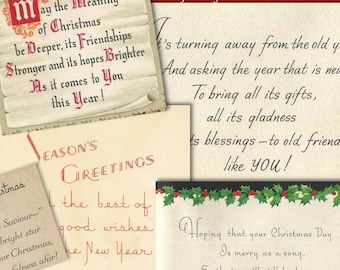 May the Meaning
of Christmas
be Deeper, its Friendships
Stronger and its hopes Brighter
As it comes to You
this Year!
It's turning away from the old
And asking the year that is new
To bring all its gifts,
all its gladness
its blessings — to old friends
like YOU!
SEASON'S
GREETINGS
the best of
good wishes
the New Year
Christmas
Saviour—"
bright star
our Christmas,
Hoping that your Christmas Day
Is merry as a song,